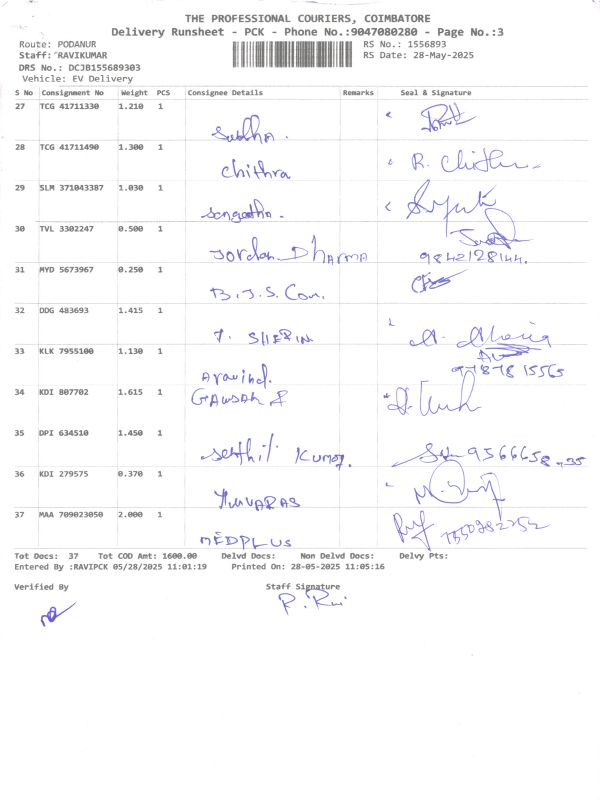 THE PROFESSIONAL COURIERS, COIMBATORE
Delivery Runsheet - PCK - Phone No.:9047080280 - Page No.:3
Route: PODANUR
RS No.: 1556893
Staff: RAVIKUMAR
RS Date: 28-May-2025
DRS No.: DCJB155689303
Vehicle: EV Delivery
S No Consignment No Weight PCS Consignee Details Remarks Seal & Signature
27 TCG 41711330 1.210 1
Subha.
28 TCG 41711490 1.300 1
Chithra R. Chithra
29 SLM 371043387 1.030 1
Sangeetha.
30 TVL 3302247 0.500 1
Jordan Dharma 9842128144.
31 MYD 5673967 0.250 1
B.J.S. Con.
32 DDG 483693 1.415 1
T. SHERIN
33 KLK 7955100 1.130 1
Aravind. 9787815565
34 KDI 807702 1.615 1
GAWSAR
35 DPI 634510 1.450 1
Senthil Kumar.
36 KDI 279575 0.370 1
YUVARAS
37 MAA 709023050 2.000 1
MEDPLUS
Tot Docs: 37 Tot COD Amt: 1600.00 Delvd Docs: Non Delvd Docs: Delvy Pts:
Entered By :RAVIPCK 05/28/2025 11:01:19 Printed On: 28-05-2025 11:05:16
Verified By Staff Signature